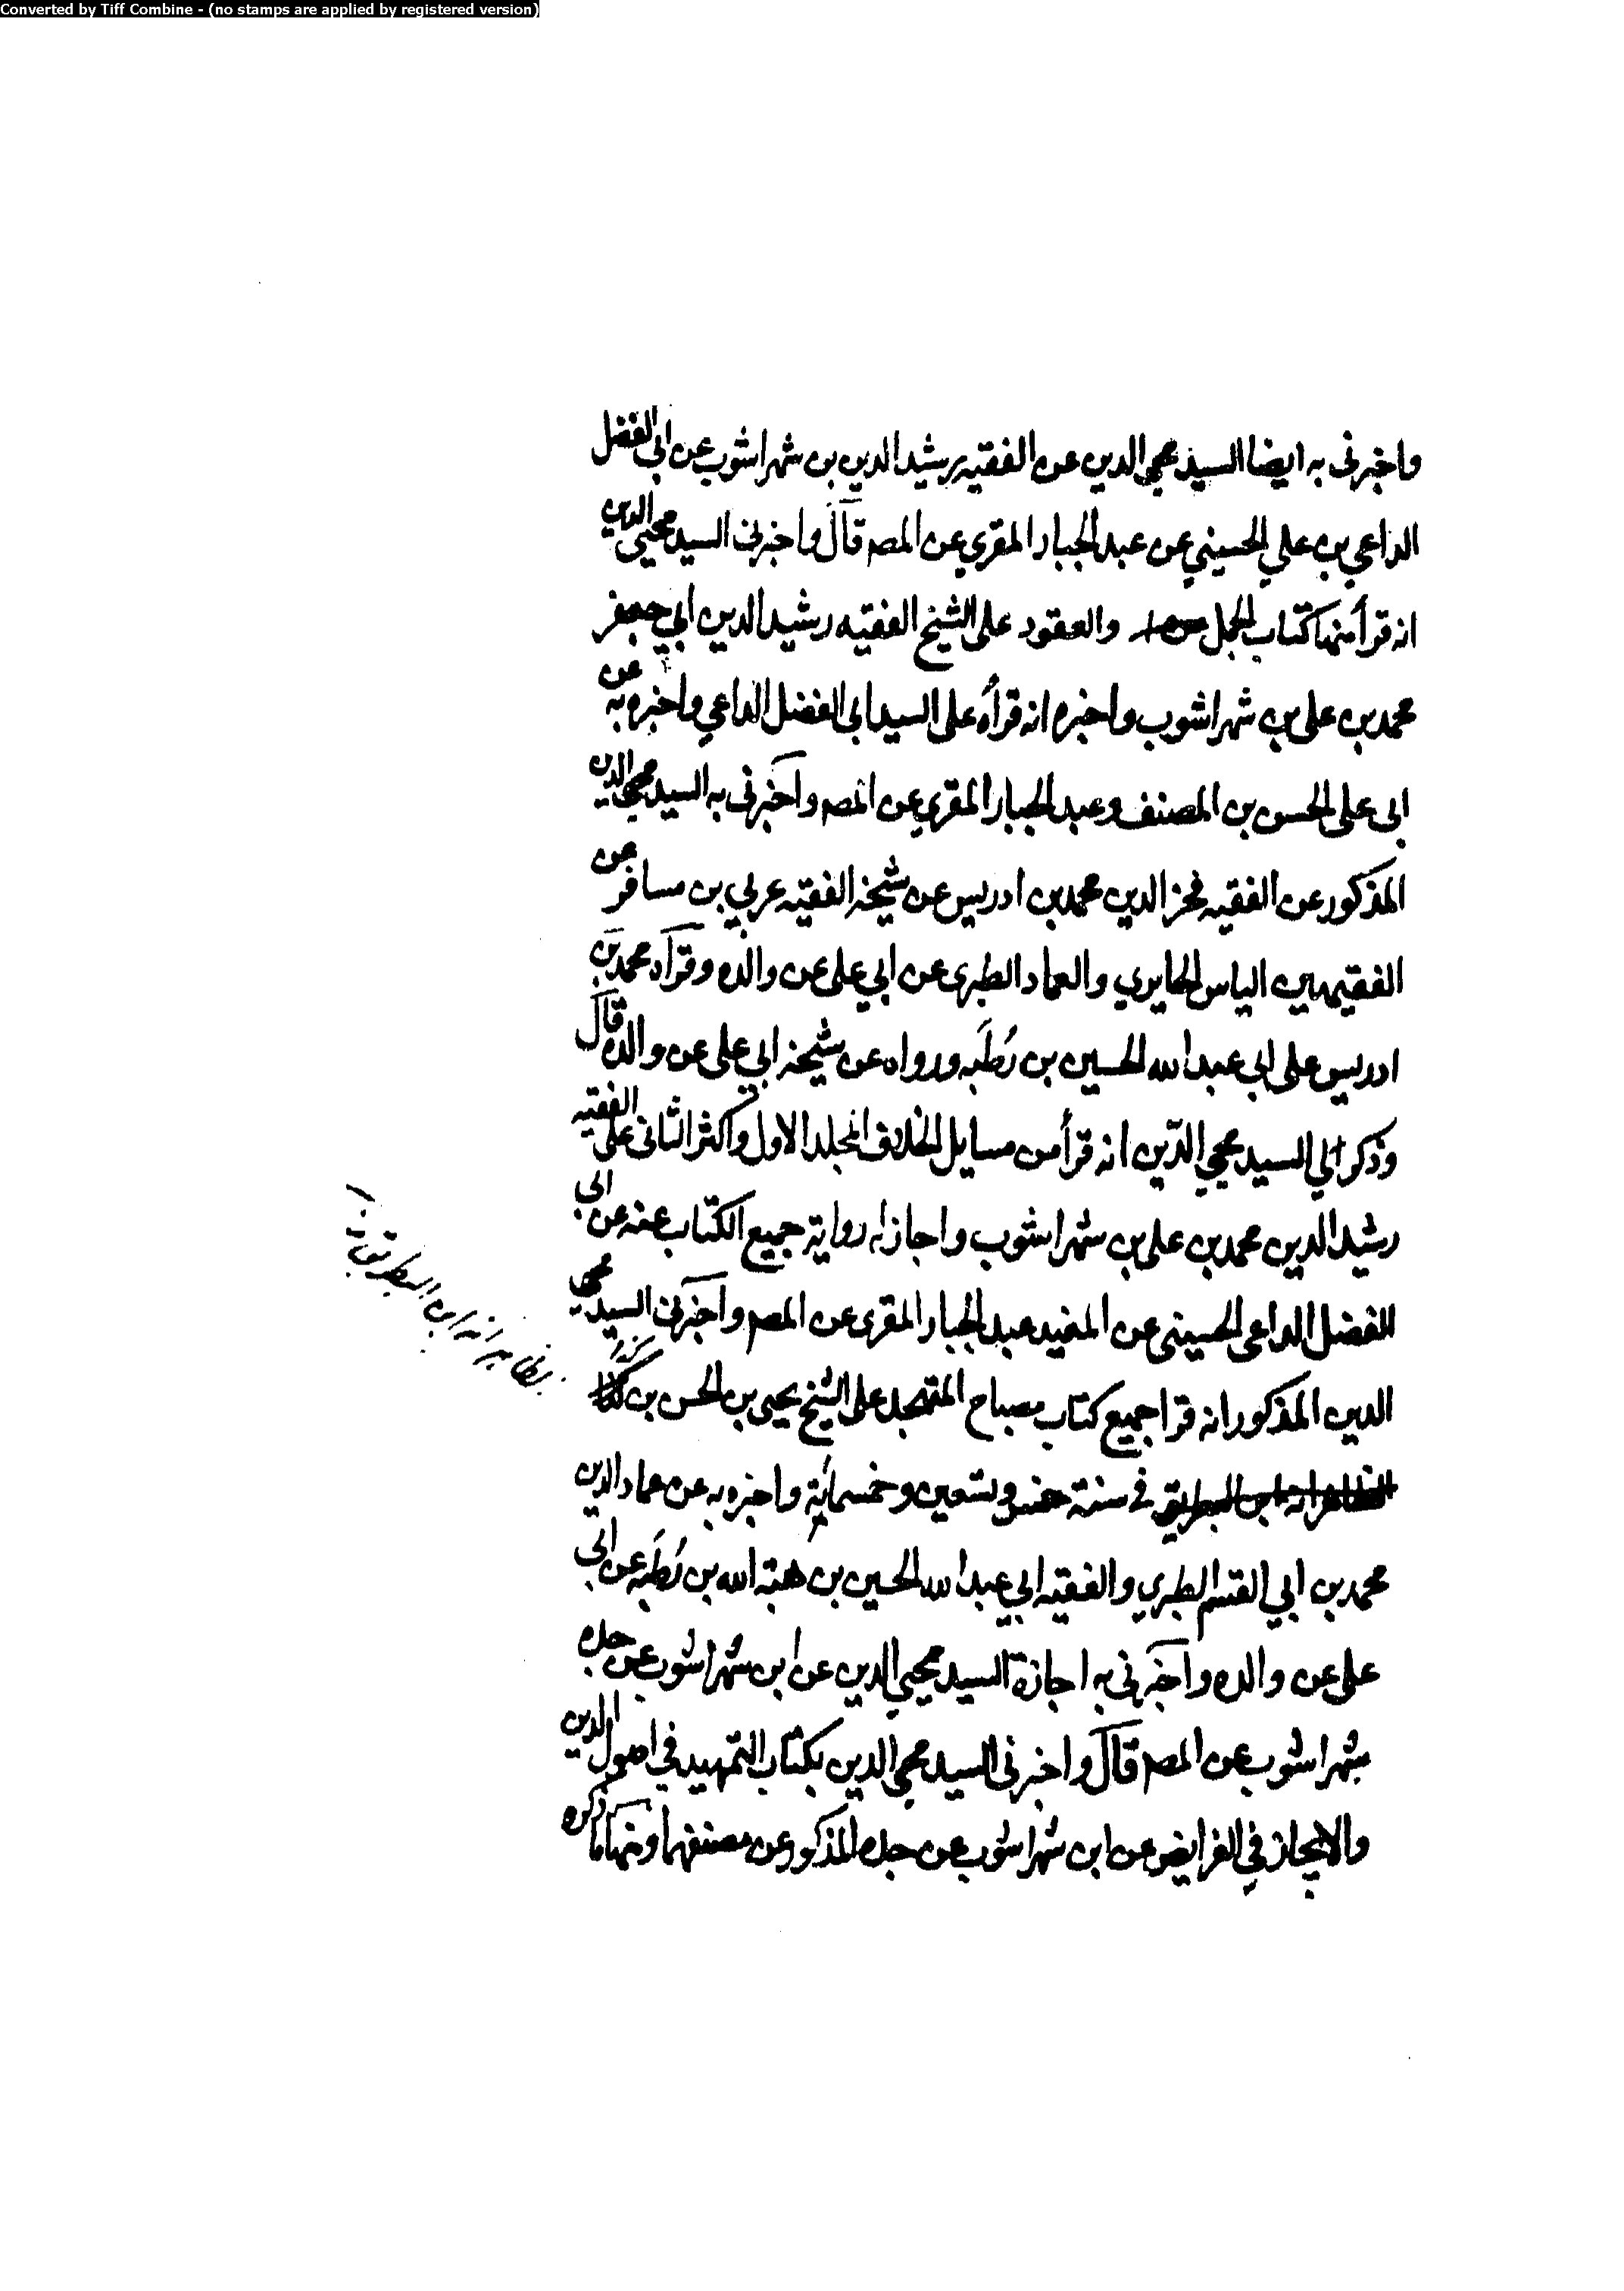 Converted by Tiff Combine - (no stamps are applied by registered version)
واخبرنى به ايضا السيد محيي الدين عن الفقيه رشيد الدين بن شهراشوب عن ابى الفضل
الداعي بن علي الحسيني عن عبد الجبار المقري عن المصـ قال واخبرنى السيد محيي الدين
انه قرأ منها كتاب الجمل والعقود على الشيخ الفقيه رشيد الدين ابي جعفر
محمد بن على بن شهراشوب واخبره انه قرأه على السيد ابى الفضل الداعي واخبره به عن
ابى على الحسن بن المصنف وعبد الجبار المقري عن المصـ واخبرنى به السيد محيي الدين
المذكور عن الفقيه فخر الدين محمد بن ادريس عن شيخه الفقيه عربي بن مسافر عن
الفقيهين الياس الحايري والعماد الطبرى عن ابي على عن والده وقرأه محمد بن
ادريس على ابى عبد الله الحسين بن رُطَبه ورواه عن شيخه ابي على عن والده قال
وذكر لي السيد محيي الدّين انه قرأ من مسايل الخلاف المجلد الاول واكثر الثانى على الفقيه
رشيد الدين محمد بن على بن شهراشوب واجاز له رواية جميع الكتاب عنه عن ابى
الفضل الداعى الحسينى عن المفيد عبد الجبار المقرى عن المصـ واخبرنى السيد محيي
الدين المذكور انه قرا جميع كتاب مصباح المتهجد على الشيخ يحيى بن الحسن بن كذا
الظاهر انه ابن البطريق فى سنة خمس وتسعين وخمسمائة واخبره به عن عماد الدين
محمد بن ابي القسم الطبري والفقيه ابي عبد الله الحسين بن هبة الله بن رُطَبه عن ابى
على عن والده واخبرنى به اجازة السيد محيي الدين عن ابن شهراشوب عن جده
شهراشوب عن المصـ قال واخبرنى السيد محيي الدين بكتاب التمهيد في اصول الدين
والايجاز في الفرايض عن ابن شهراشوب عن جده المذكور عن مصنفهما ومنها ما ذكره
الظاهر انه ابن البطريق